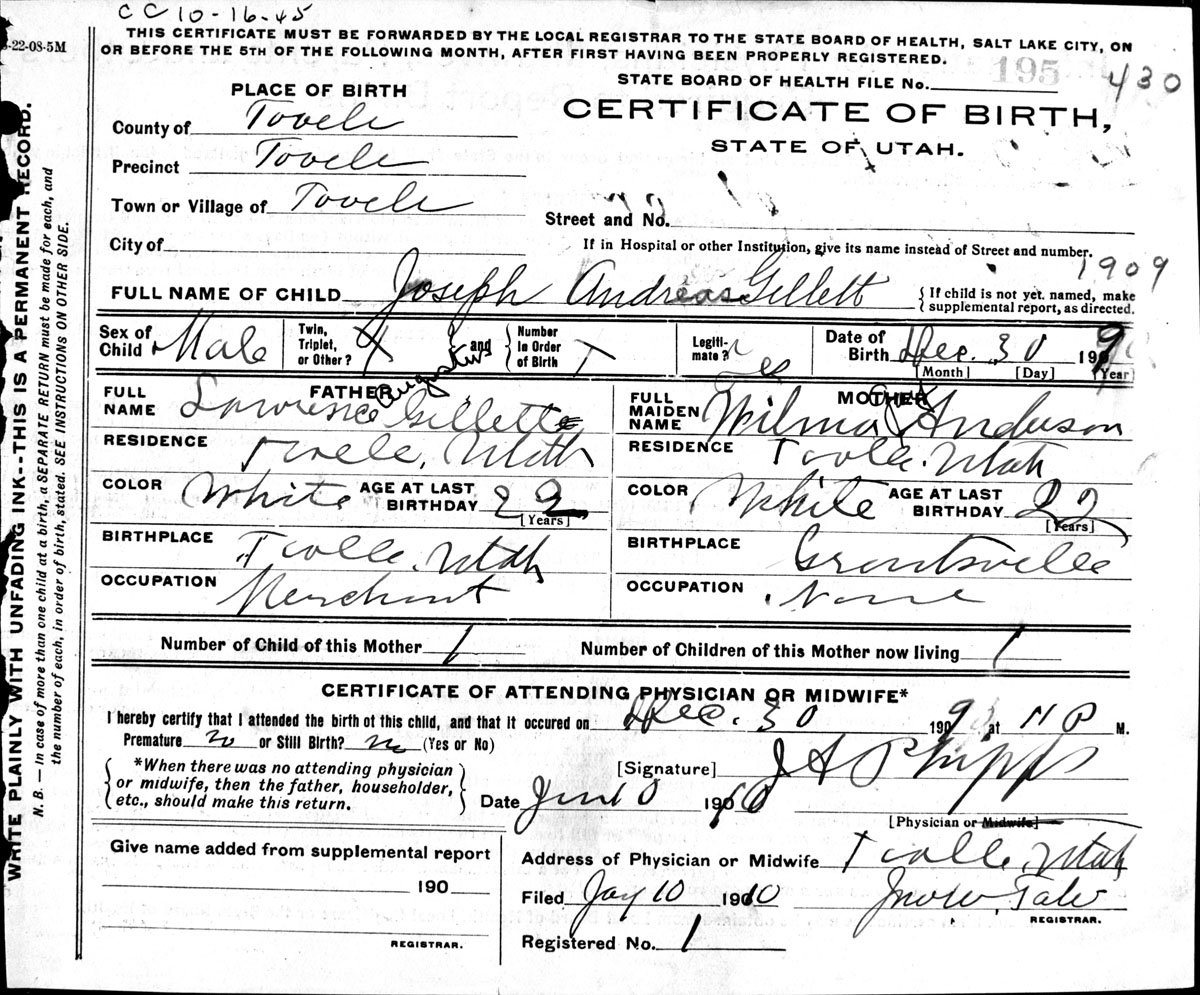 CC 10-16-45
-22-08-5M
THIS CERTIFICATE MUST BE FORWARDED BY THE LOCAL REGISTRAR TO THE STATE BOARD OF HEALTH, SALT LAKE CITY, ON
OR BEFORE THE 5TH OF THE FOLLOWING MONTH, AFTER FIRST HAVING BEEN PROPERLY REGISTERED.
STATE BOARD OF HEALTH FILE No. 195 430
PLACE OF BIRTH
CERTIFICATE OF BIRTH,
STATE OF UTAH.
County of Tooele
Precinct Tooele
Town or Village of Tooele
Street and No.
City of
If in Hospital or other Institution, give its name instead of Street and number.
1909
FULL NAME OF CHILD Joseph Andreas Gillett { If child is not yet named, make
supplemental report, as directed.
Sex of Child Male Twin, Triplet, or Other? and { Number in Order of Birth 1 Legiti-mate? Yes Date of Birth Dec. 30 1909
[Month] [Day] [Year]
FATHER
FULL NAME Lawrence Augustus Gillette
RESIDENCE Tooele, Utah
COLOR White AGE AT LAST BIRTHDAY 22 [Years]
BIRTHPLACE Tooele, Utah
OCCUPATION Merchant
MOTHER
FULL MAIDEN NAME Wilma Anderson
RESIDENCE Tooele, Utah
COLOR White AGE AT LAST BIRTHDAY 22 [Years]
BIRTHPLACE Grantsville
OCCUPATION None
Number of Child of this Mother 1 Number of Children of this Mother now living 1
CERTIFICATE OF ATTENDING PHYSICIAN OR MIDWIFE*
I hereby certify that I attended the birth of this child, and that it occured on Dec. 30 1909, at 11 P M.
Premature no or Still Birth? no (Yes or No)
{ *When there was no attending physician
or midwife, then the father, householder,
etc., should make this return. }
[Signature] J A Phipps
Date 10 1910
[Physician or Midwife]
Give name added from supplemental report
190
REGISTRAR.
Address of Physician or Midwife Tooele, Utah
Filed Jay 10 1910
REGISTRAR.
Registered No. 1
WRITE PLAINLY WITH UNFADING INK--THIS IS A PERMANENT RECORD.
N. B. — In case of more than one child at a birth, a SEPARATE RETURN must be made for each, and
the number of each, in order of birth, stated. SEE INSTRUCTIONS ON OTHER SIDE.